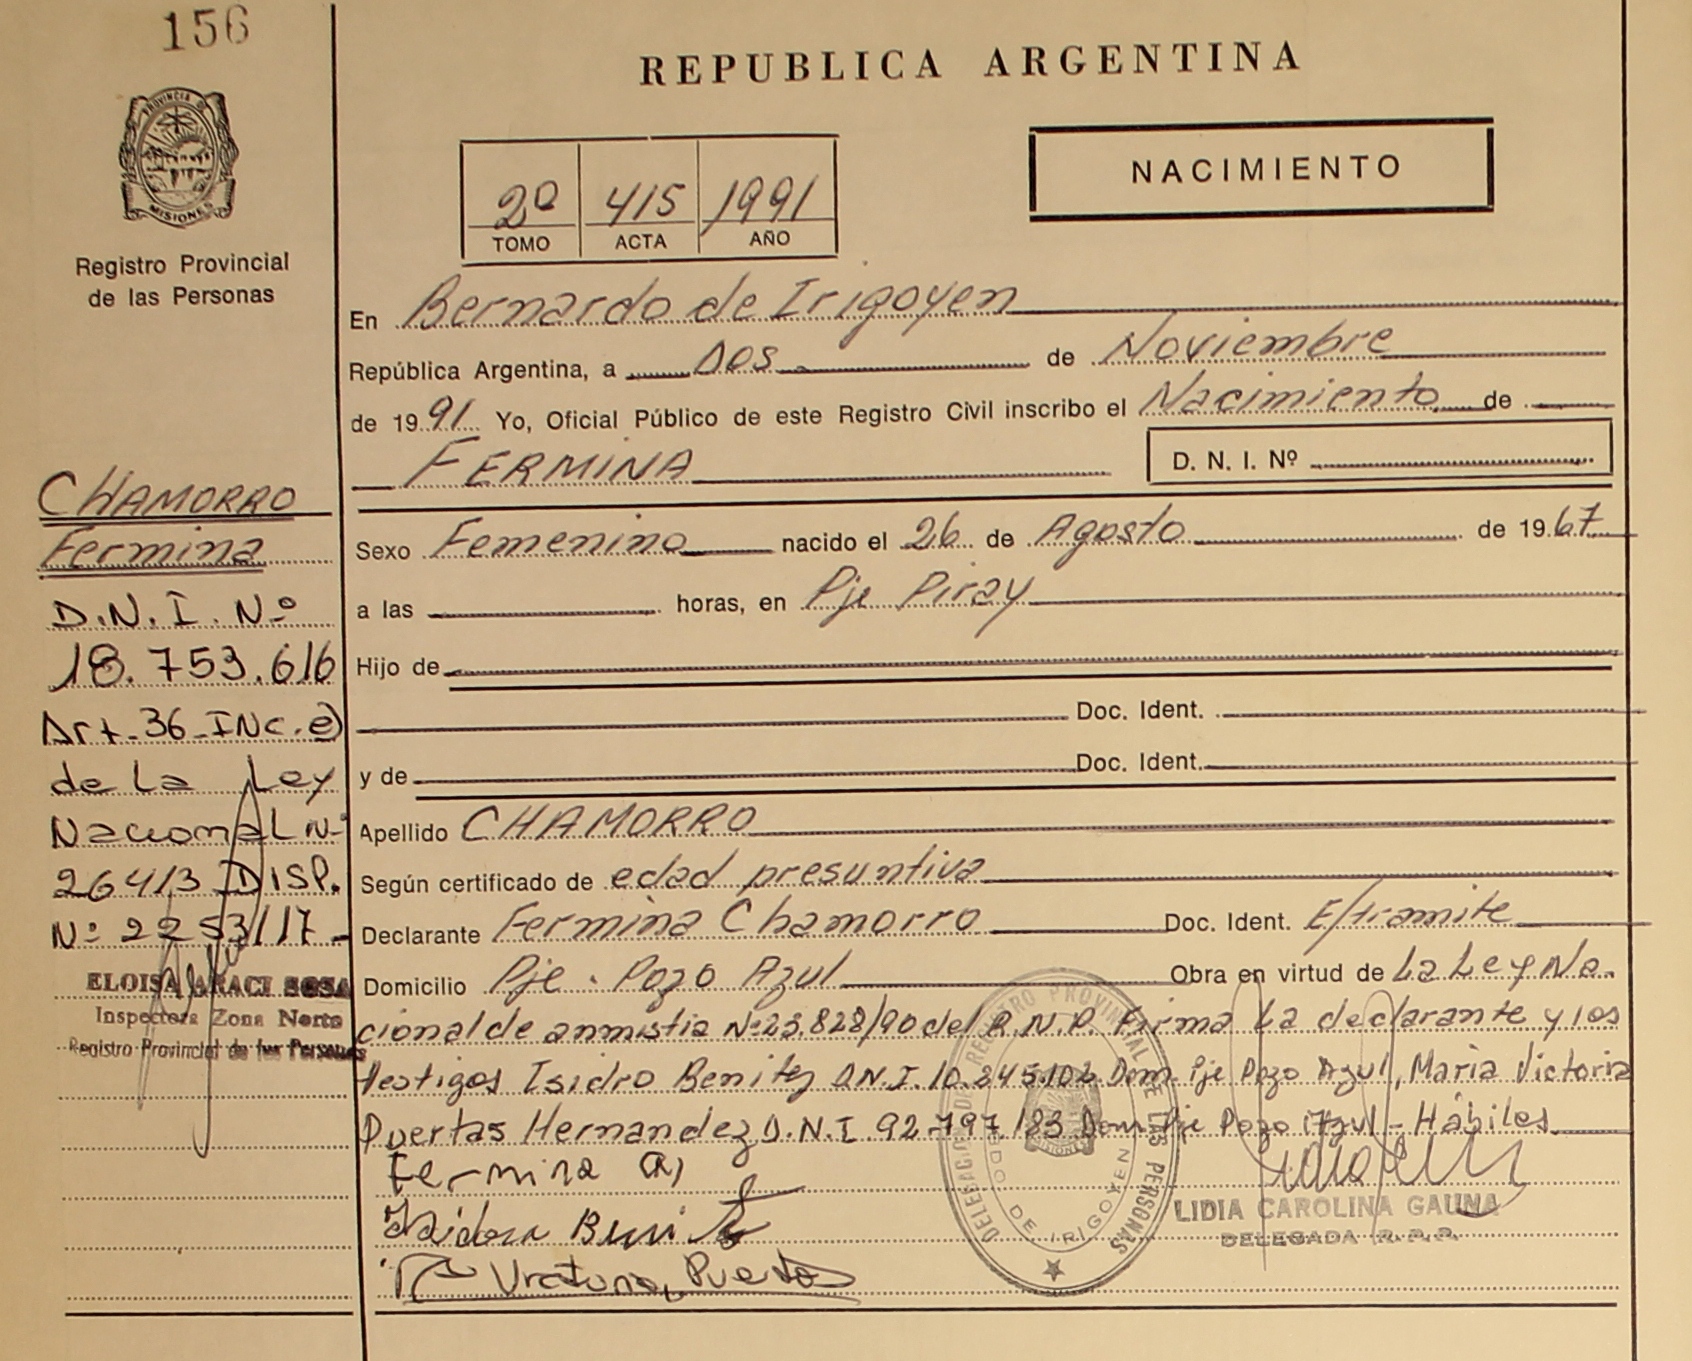 156
REPUBLICA ARGENTINA
PROVINCIA D
MISIONES
Registro Provincial
de las Personas
NACIMIENTO
2º 415 1991
TOMO ACTA AÑO
En Bernardo de Irigoyen
República Argentina, a Dos de Noviembre
de 1991 Yo, Oficial Público de este Registro Civil inscribo el Nacimiento de
FERMINA D. N. I. Nº
Sexo Femenino nacido el 26 de Agosto de 1967
a las horas, en Pje Piray
Hijo de
Doc. Ident.
y de Doc. Ident.
Apellido CHAMORRO
Según certificado de edad presuntiva
Declarante Fermina Chamorro Doc. Ident. E/tramite
Domicilio Pje. Pozo Azul Obra en virtud de La Ley Na.
cional de anmistia Nº 23.828/90 del R.N.P. Firma La declarante y los
testigos Isidro Benitez D.N.I. 10.245.102 Dom. Pje Pozo Azul, Maria Victoria
Puertas Hernandez D.N.I 92.797.183 Dom. Pje Pozo Azul - Hábiles
CHAMORRO
Fermina
D.N.I. Nº
18.753.616
Art. 36 INC. e)
de La Ley
Nacional Nº
26413 DISP.
Nº 2253/17
ELOISA ARACI SOSA
Inspectora Zona Norte
Registro Provincial de las Personas
Fermina
Puertas
DELEGACION DE REGISTRO PROVINCIAL DE LAS PERSONAS
DE IRIGOYEN
LIDIA CAROLINA GAUNA
DELEGADA R.P.P.